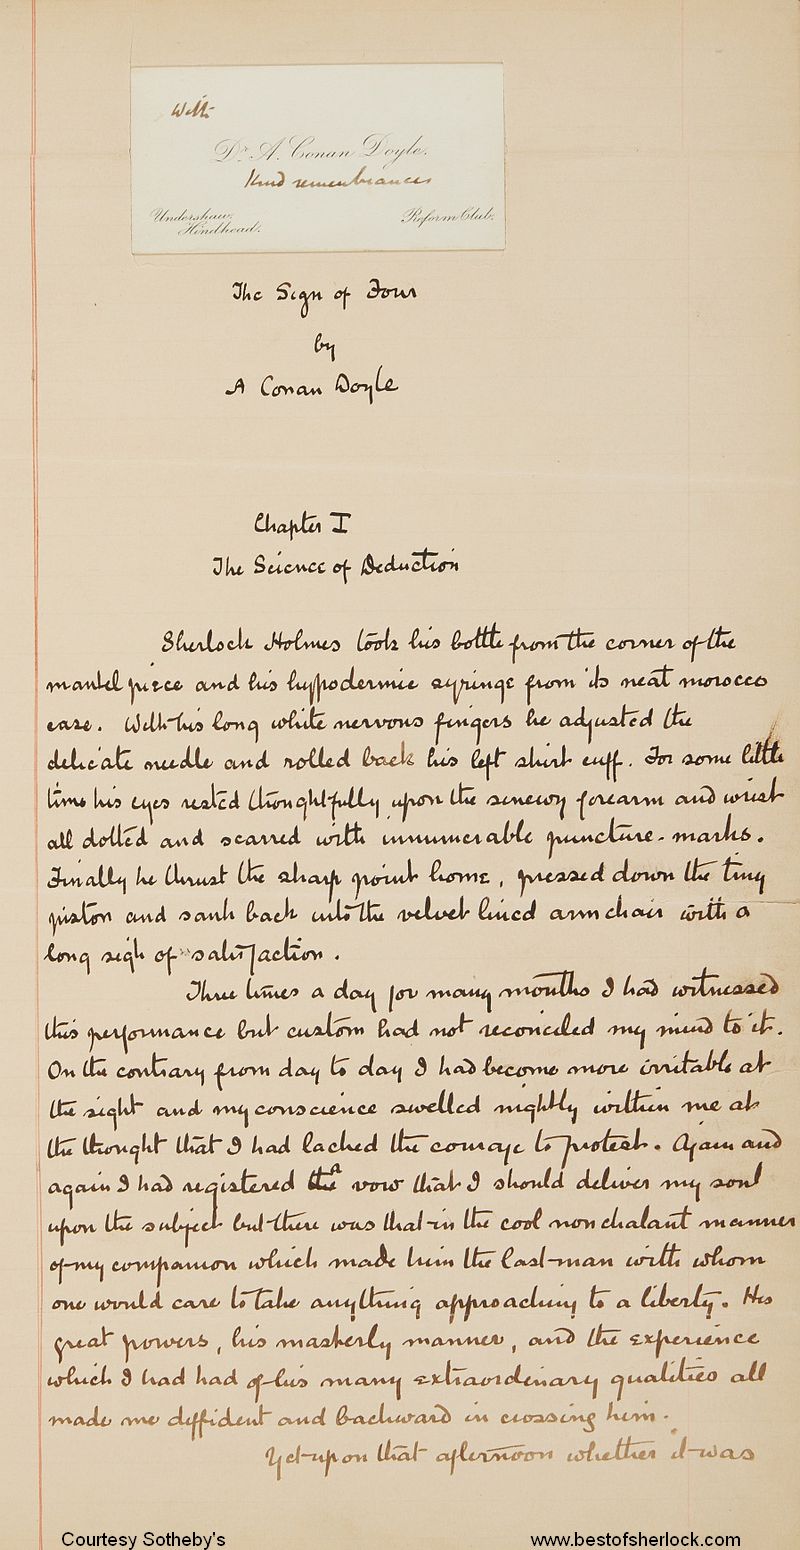 With
Dr. A. Conan Doyle.
Kind remembrances
Undershaw, Reform Club.
Hindhead.
The Sign of Four
by
A Conan Doyle
Chapter I
The Science of Deduction
Sherlock Holmes took his bottle from the corner of the
mantel piece and his hypodermic syringe from its neat morocco
case. With his long white nervous fingers he adjusted the
delicate needle and rolled back his left shirt cuff. For some little
time his eyes rested thoughtfully upon the sinewy forearm and wrist
all dotted and scarred with innumerable puncture-marks.
Finally he thrust the sharp point home, pressed down the tiny
piston and sank back into the velvet lined armchair with a
long sigh of satisfaction.
Three times a day for many months I had witnessed
this performance but custom had not reconciled my mind to it.
On the contrary from day to day I had become more irritable at
the sight and my conscience swelled nightly within me at
the thought that I had lacked the courage to protest. Again and
again I had registered a vow that I should deliver my soul
upon the subject but there was that in the cool nonchalant manner
of my companion which made him the last man with whom
one would care to take anything approaching to a liberty. His
great powers, his masterly manner, and the experience
which I had had of his many extraordinary qualities all
made me diffident and backward in crossing him.
Yet upon that afternoon whether it was
Courtesy Sotheby's www.bestofsherlock.com